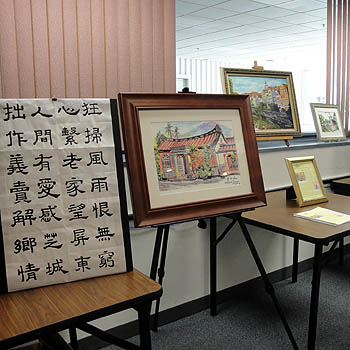 狂掃風雨恨無窮
心繫老家望屏東
人間有愛感芝城
拙作義賣解鄉情